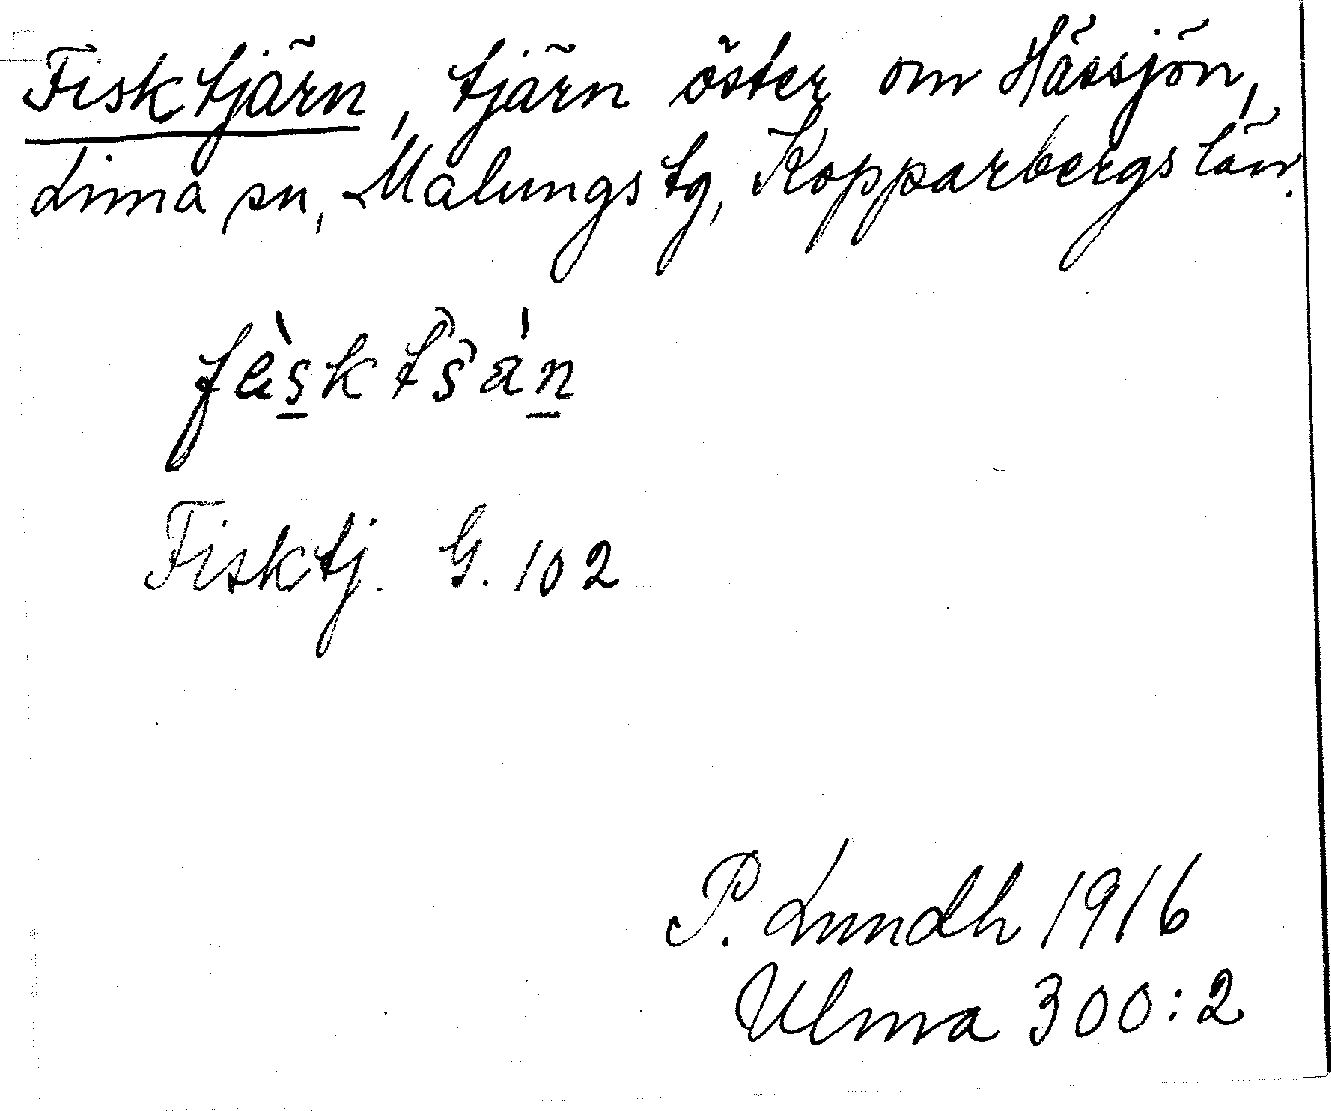 Fisktjärn, tjärn öster om Hässjön,
Lima sn, Malungs tg, Kopparbergs län.
Fisktj. G. 102
P. Lundh 1916
Ulma 300:2